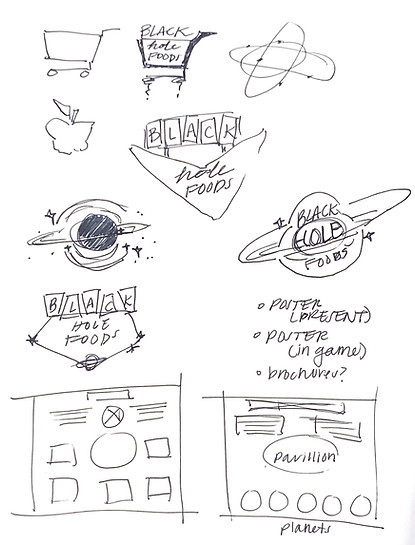 BLACK
hole
FOODS
BLACK
hole
FOODS
BLACK
HOLE
FOODS
BLACK
HOLE
FOODS
◦ POSTER
(PRESENT)
◦ POSTER
(in game)
◦ brochures?
pavillion
planets